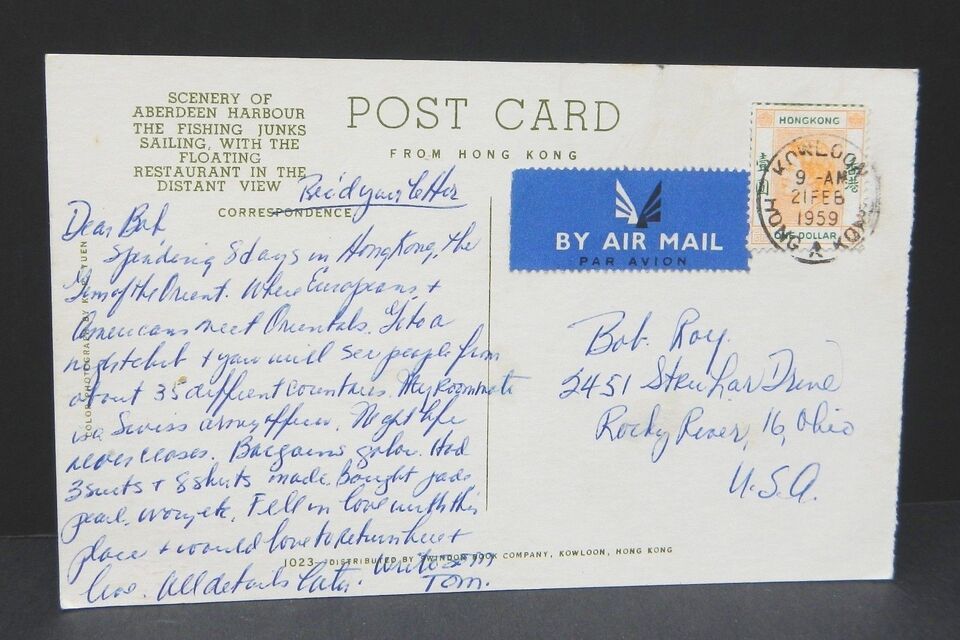 SCENERY OF
ABERDEEN HARBOUR
THE FISHING JUNKS
SAILING, WITH THE
FLOATING
RESTAURANT IN THE
DISTANT VIEW
POST CARD
FROM HONG KONG
CORRESPONDENCE
Rec'd your letter
Dear Bob,
Spending 8 days in Hong Kong, the
Gem of the Orient. Where Europeans +
Americans meet Orientals. Go to a
nightclub + you will see people from
about 35 different countries. My roommate
is a Swiss army officer. Night life
never ceases. Bargains galor. Had
3 suits + 8 shirts made. Bought jade
pearl, ivory, etc. Fell in love with this
place + would love to return here +
live. All details later. Write
Tom.
COLOR PHOTOGRAPH BY YUEN
1023—DISTRIBUTED BY SWINDON BOOK COMPANY, KOWLOON, HONG KONG
BY AIR MAIL
PAR AVION
HONGKONG
壹圓
ONE DOLLAR
KOWLOON
9 - AM
21 FEB
1959
HONG KONG
Bob Roy
2451 Drive
Rocky River, 16, Ohio
U.S.A.